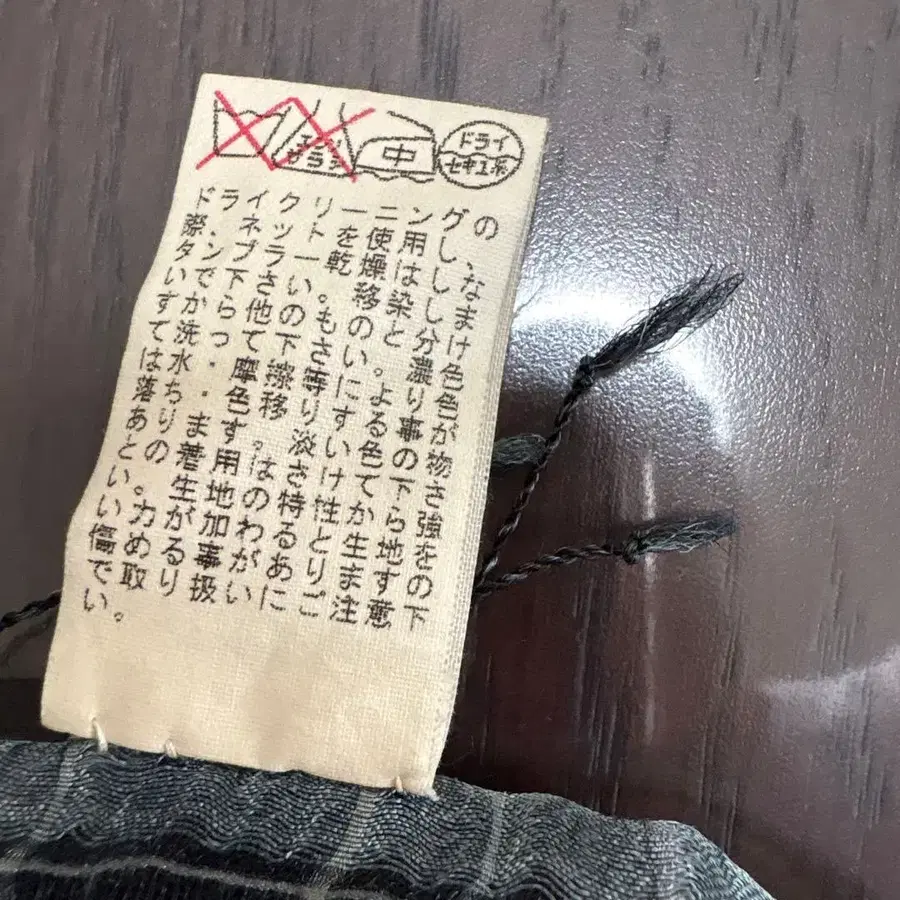 エンソ
サラシ
中
ドライ
セキユ系
ドライクリーニングの
際、ネットを使用し、
タンブラー乾燥はしな
いで下さい。移染しま
すから他のものと分け
て洗って下さい。濃色
は水・摩擦等により色
落ち・色移りする事が
あります。淡い色の物
との着用はさけて下さ
い。生地の特性から強
い力が加わると生地を
傷める事がありますの
で取り扱いにご注意下
い。